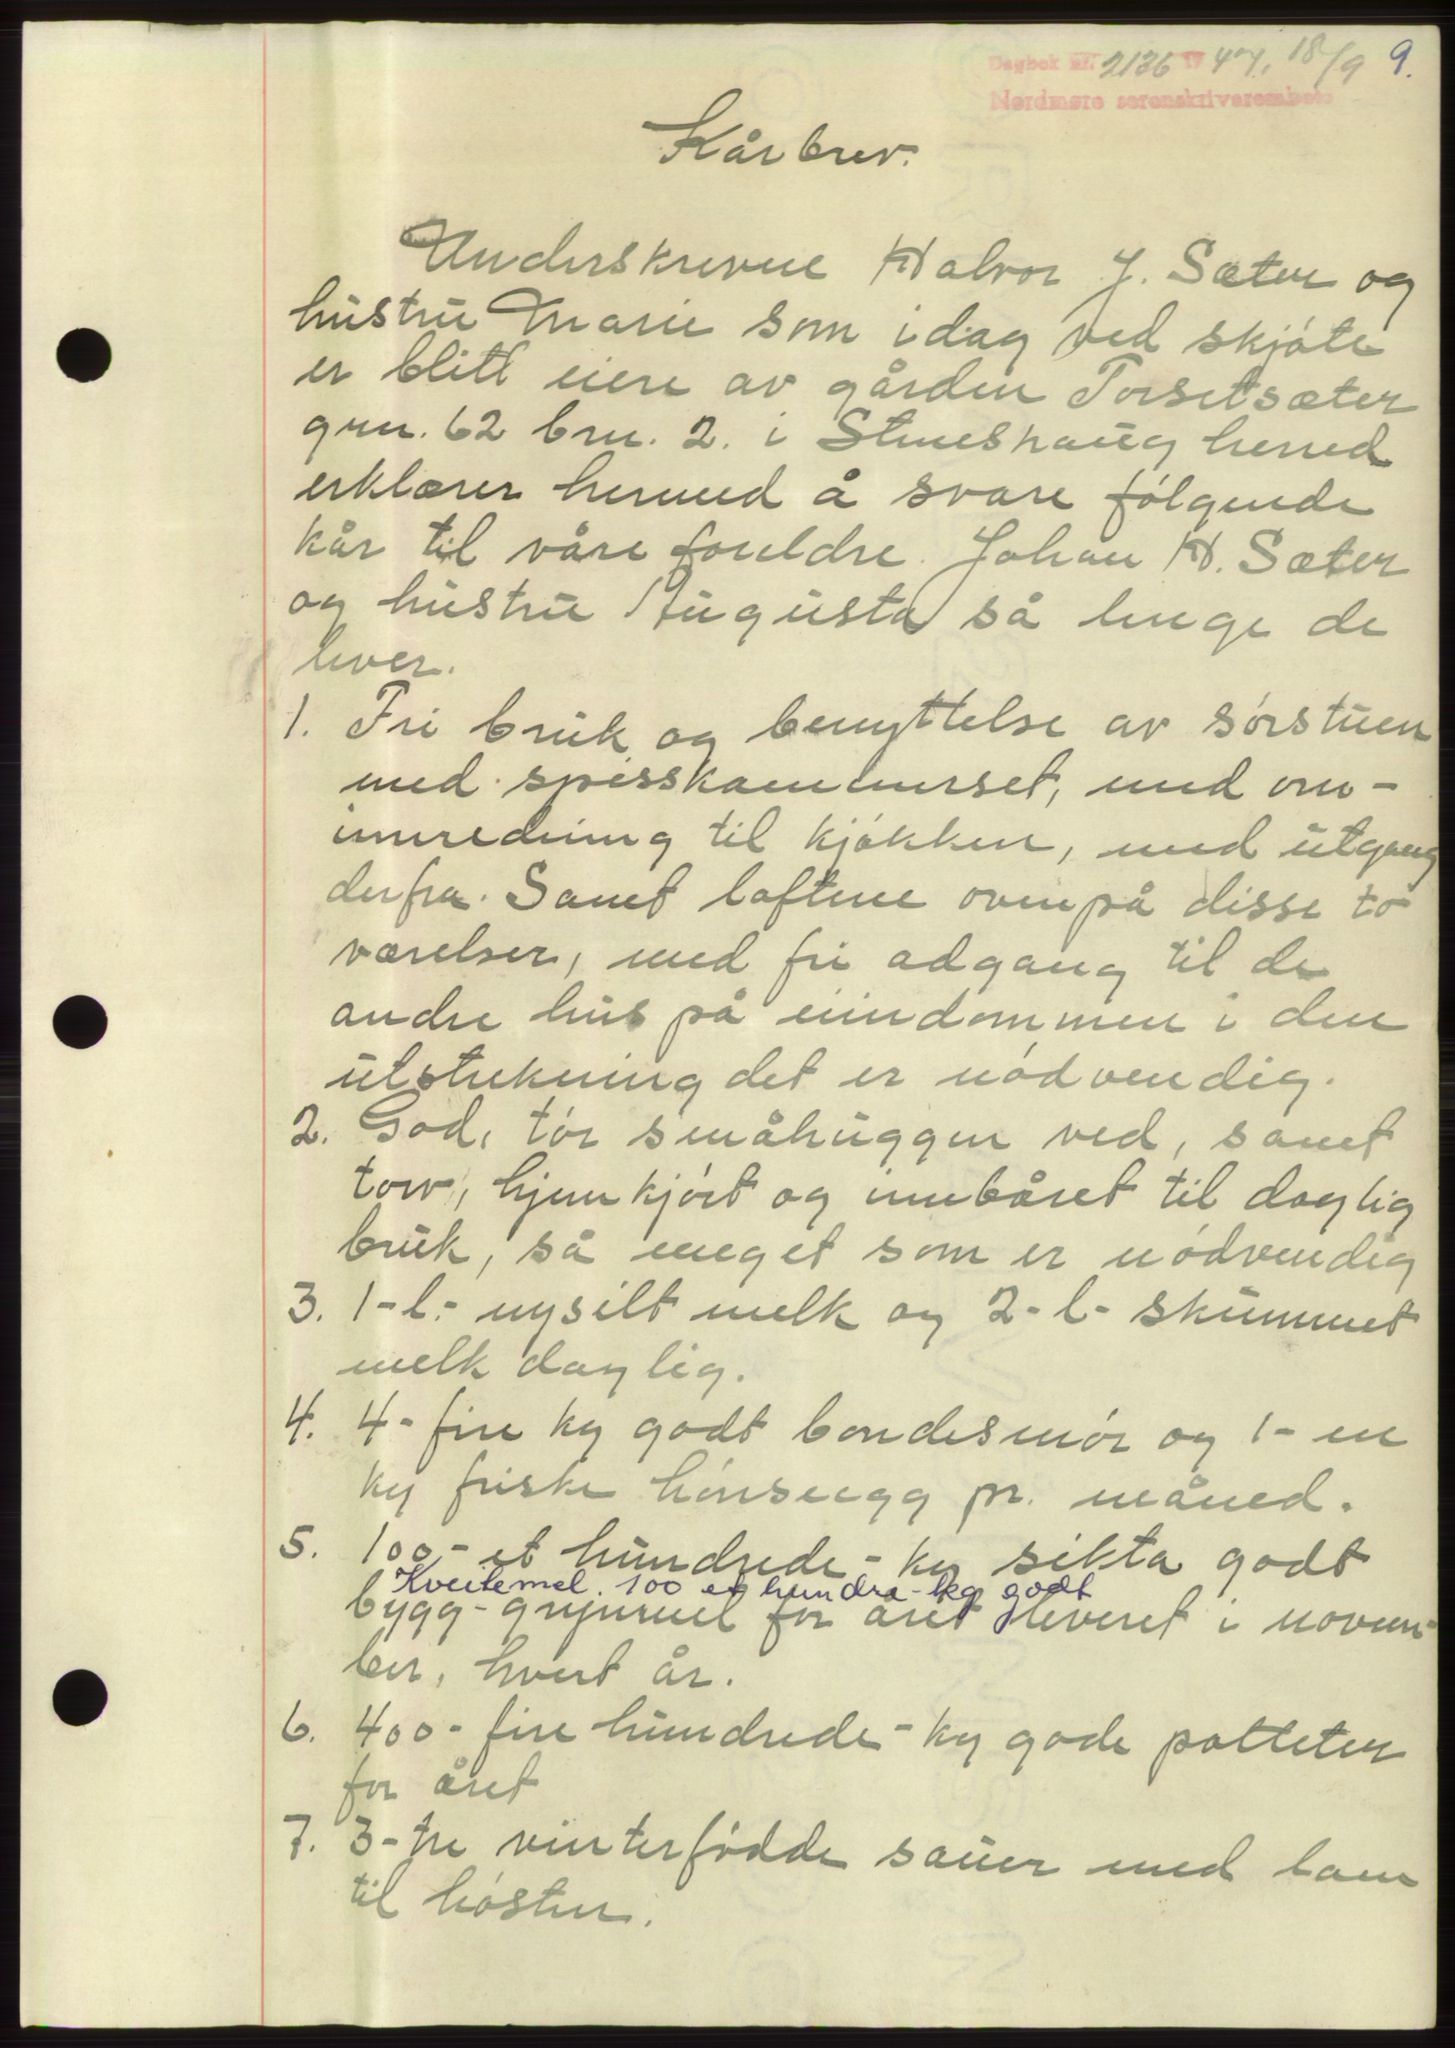 Dagbok nr. 2136 1947, 18/9 9.
Nordmøre sorenskriverembete
Kårbrev.
Underskrevne Halvor J. Sæter og
hustru Marie som idag ved skjøte
er blitt eiere av gården Torsetsæter
grn. 62 brn. 2. i Stueshaug herred
erklærer hermed å svare følgende
kår til våre foreldre Johan H. Sæter
og hustru Augusta så lenge de
lever.
1. Fri bruk og benyttelse av sørstuen
med spisskammerset, med om-
innredning til kjøkken, med utgang
derfra. Samt loftene ovenpå disse to
værelser, med fri adgang til de
andre hus på eiindommen i den
utstrekning det er nødvendig.
2. God, tør småhuggen ved, samt
torv, hjemkjørt og innbåret til daglig
bruk, så meget som er nødvendig
3. 1-l.- nysilt melk og 2-l- skummet
melk daglig.
4. 4-fire kg godt bondesmør og 1-en
kg friske hønseegg pr. måned.
5. 100-et hundrede-kg sikta godt
Kveitemel. 100 et hundra-kg godt
bygg-grynmel for året leveret i novem-
ber, hvert år.
6. 400-fire hundrede-kg gode potteter
for året
7. 3-tre vinterfødde sauer med lam
til høsten.